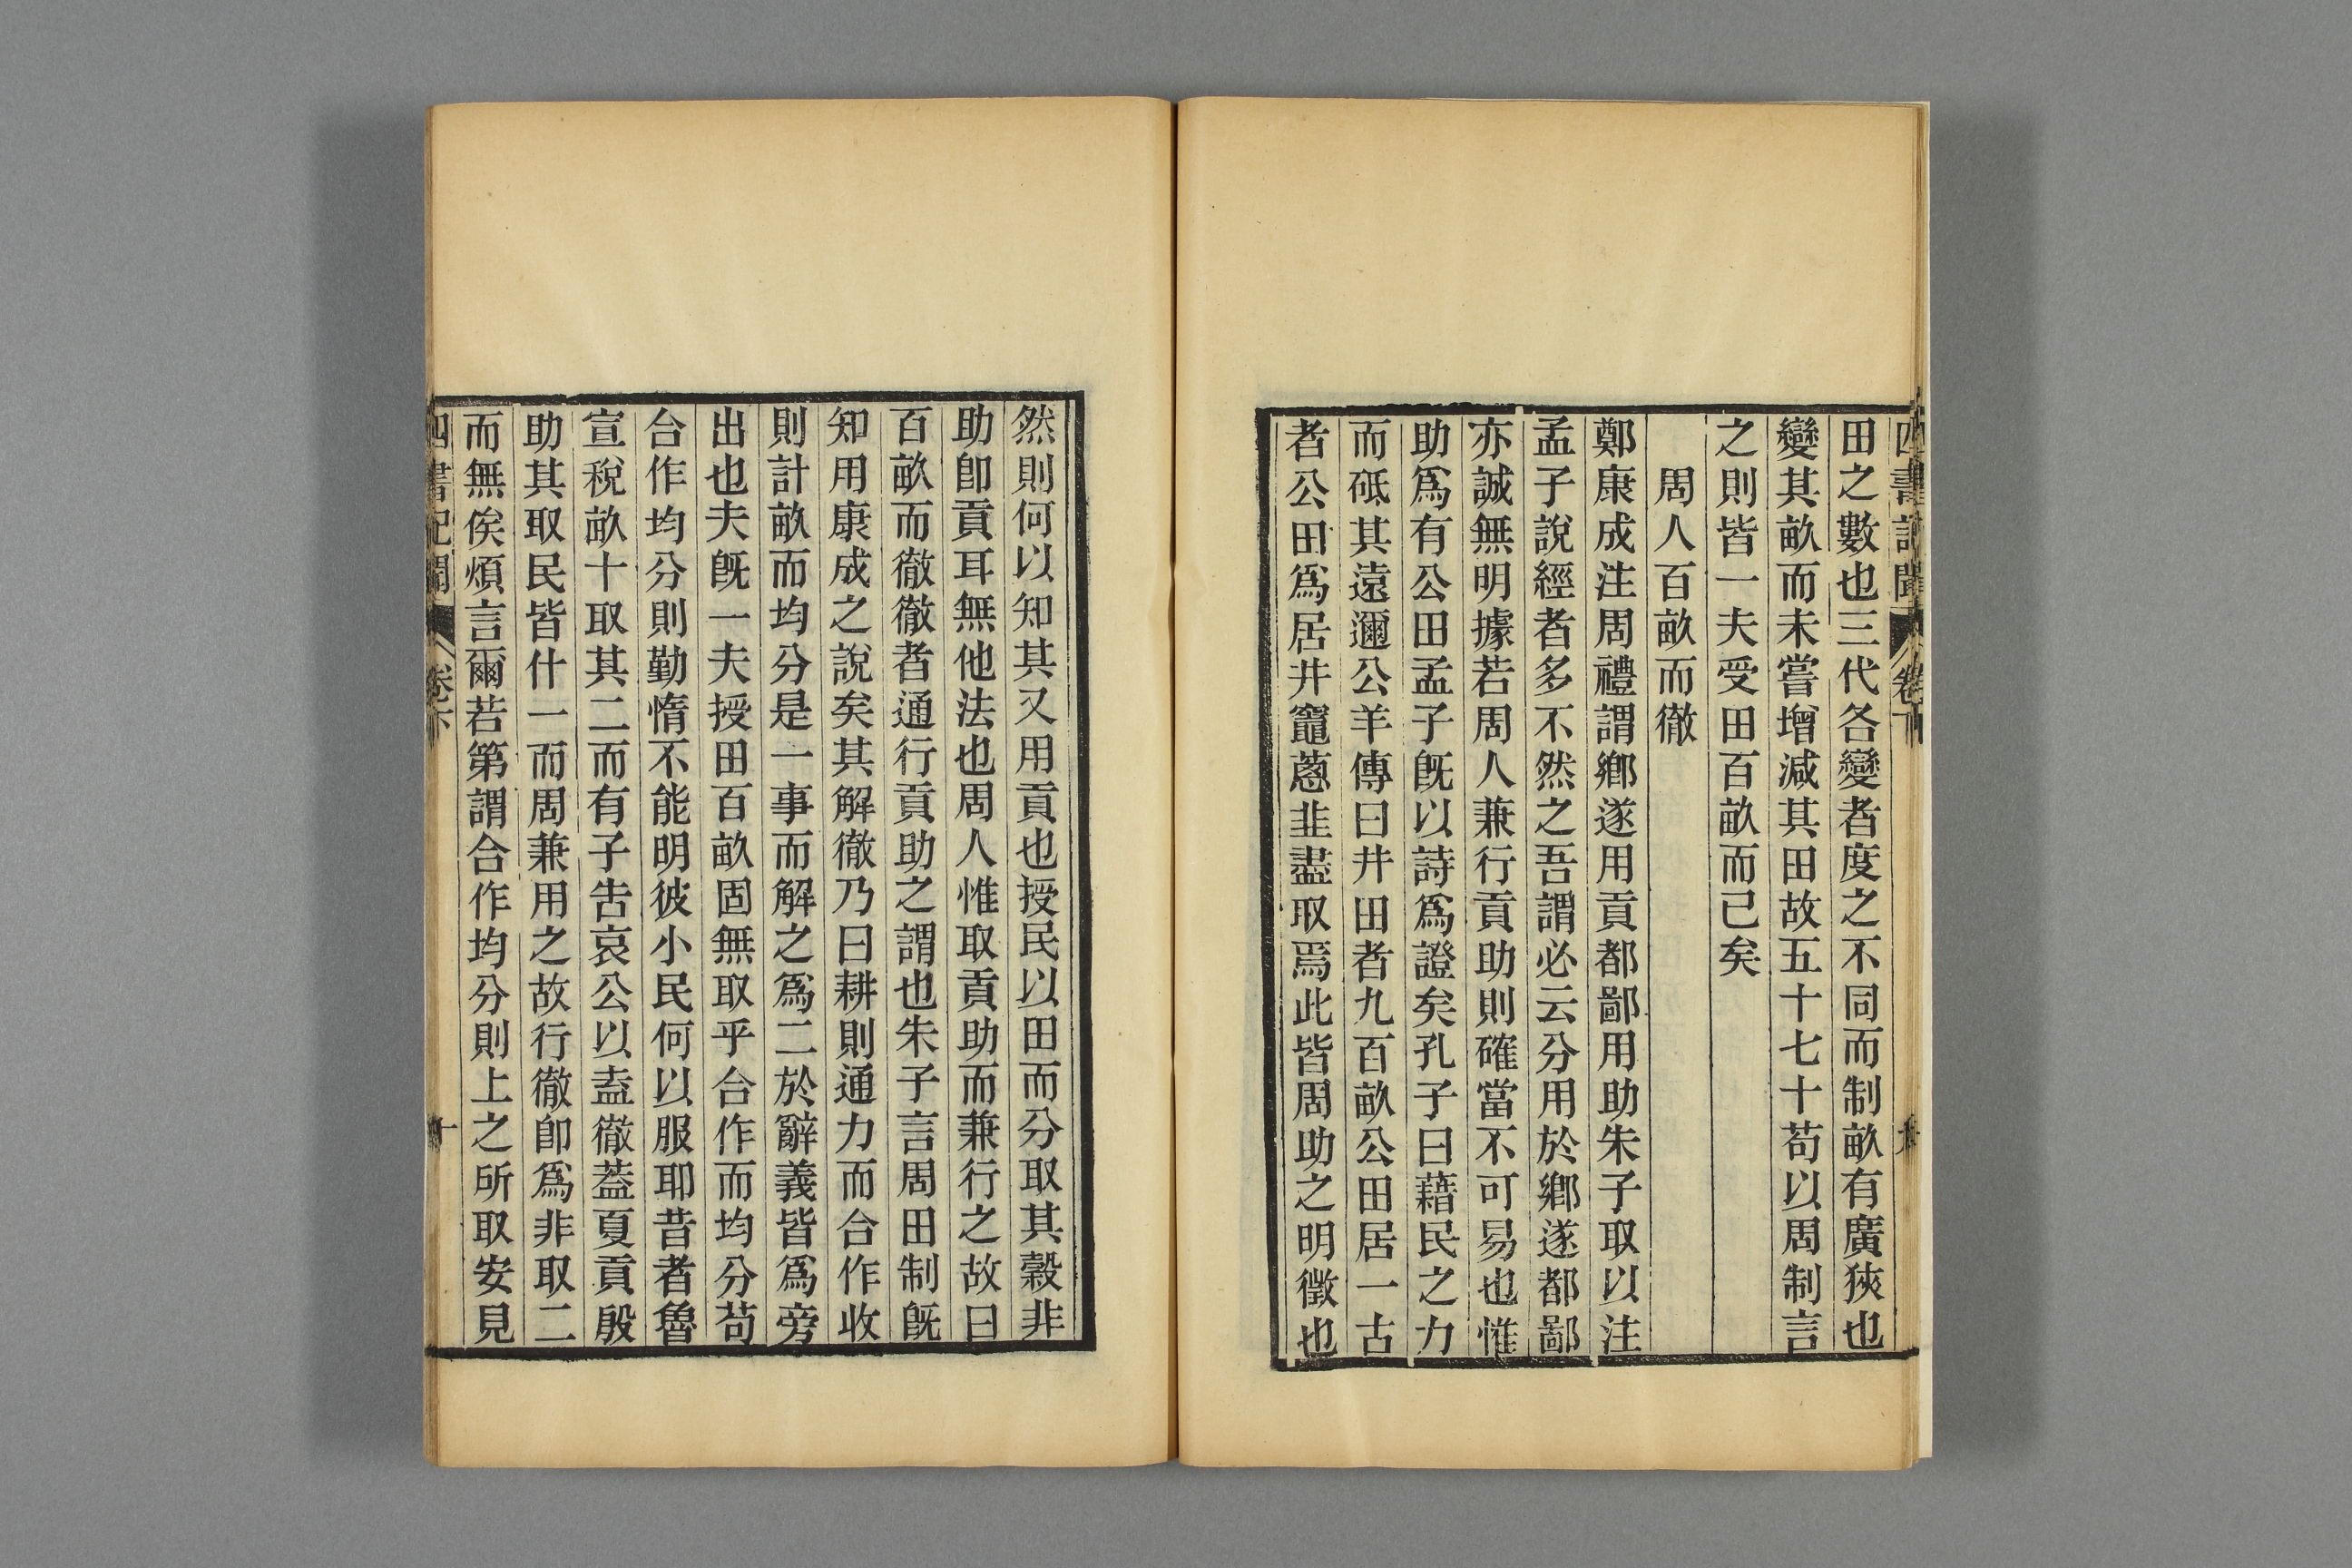 田之數也三代各變者度之不同而制畝有廣狹也
變其畝而未嘗增減其田故五十七十苟以周制言
之則皆一夫受田百畝而已矣
周人百畝而徹
鄭康成注周禮謂鄉遂用貢都鄙用助朱子取以注
孟子說經者多不然之吾謂必云分用於鄉遂都鄙
亦誠無明據若周人兼行貢助則確當不可易也惟
助爲有公田孟子旣以詩爲證矣孔子曰藉民之力
而砥其遠邇公羊傳曰井田者九百畝公田居一古
者公田爲居井竈蔥韭盡取焉此皆周助之明徵也
然則何以知其又用貢也授民以田而分取其穀非
助卽貢耳無他法也周人惟取貢助而兼行之故曰
百畝而徹徹者通行貢助之謂也朱子言周田制旣
知用康成之說矣其解徹乃曰耕則通力而合作收
則計畝而均分是一事而解之爲二於辭義皆爲旁
出也夫旣一夫授田百畝固無取乎合作而均分苟
合作均分則勤惰不能明彼小民何以服耶昔者魯
宣稅畝十取其二而有子吿哀公以盍徹蓋夏貢殷
助其取民皆什一而周兼用之故行徹卽爲非取二
而無俟煩言爾若第謂合作均分則上之所取安見
四書記聞 卷下